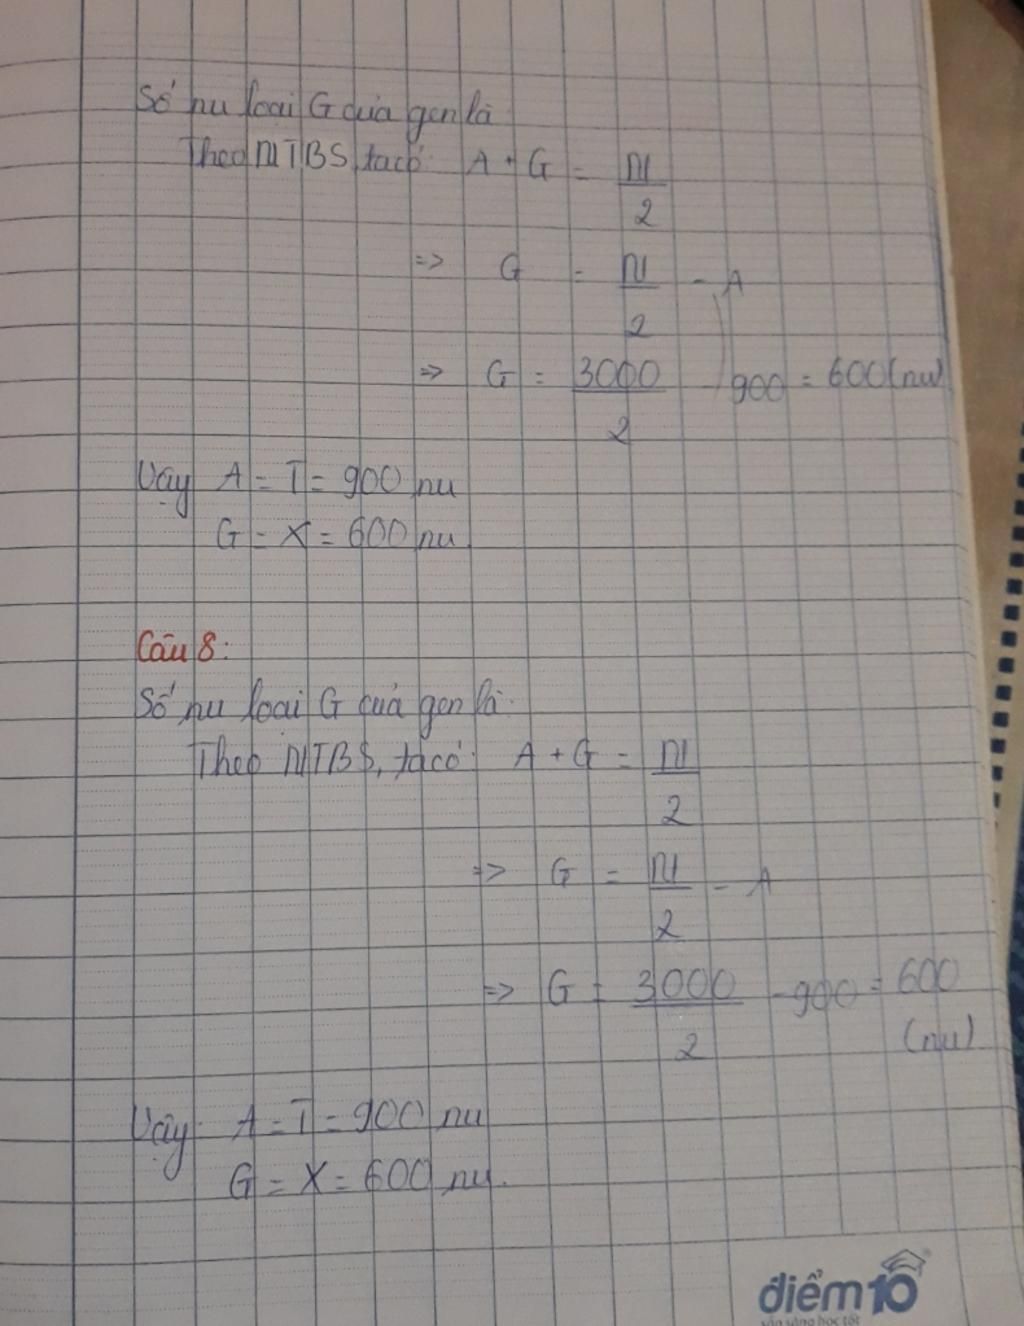 Số nu loại G của gen là
Theo NTBS, ta có: A + G = N
2
=> G = N - A
2
=> G = 3000 - 900 = 600 (nu)
2
Vậy A = T = 900 nu
G = X = 600 nu
Câu 8:
Số nu loại G của gen là:
Theo NTBS, ta có: A + G = N
2
=> G = N - A
2
=> G = 3000 - 900 = 600
2 (nu)
Vậy: A = T = 900 nu
G = X = 600 nu.
điểm10
sẵn sàng học tốt